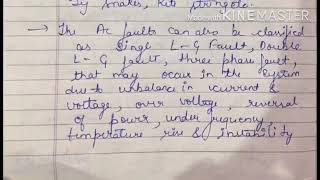 by snakes, kite strings etc.
Made with KINEMASTER
→ The Ac faults can also be classified
as Single L-G fault, Double
L-G fault, three phase fault,
that may occur in the system
due to unbalance in current &
voltage, over voltage, reversal
of power, under frequency,
temperature rise & instability